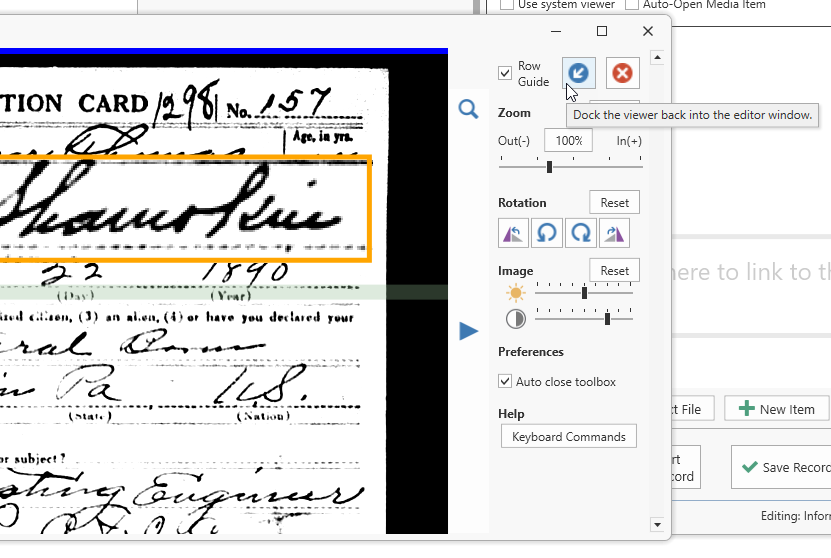 Use system viewer Auto-Open Media Item
Row Guide
Dock the viewer back into the editor window.
Zoom
Out(-) 100% In(+)
Rotation Reset
Image Reset
Preferences
Auto close toolbox
Help
Keyboard Commands
TION CARD 1298 No. 157
Age, in yrs.
Thomas
Shamokin
22 1890
(Day) (Year)
ized citizen, (3) an alien, (4) or have you declared your
eral
Pa U.S.
(State) (Nation)
or subject?
ating Engineer
here to link to th
t File New Item
rt
cord Save Record
Editing: Infor